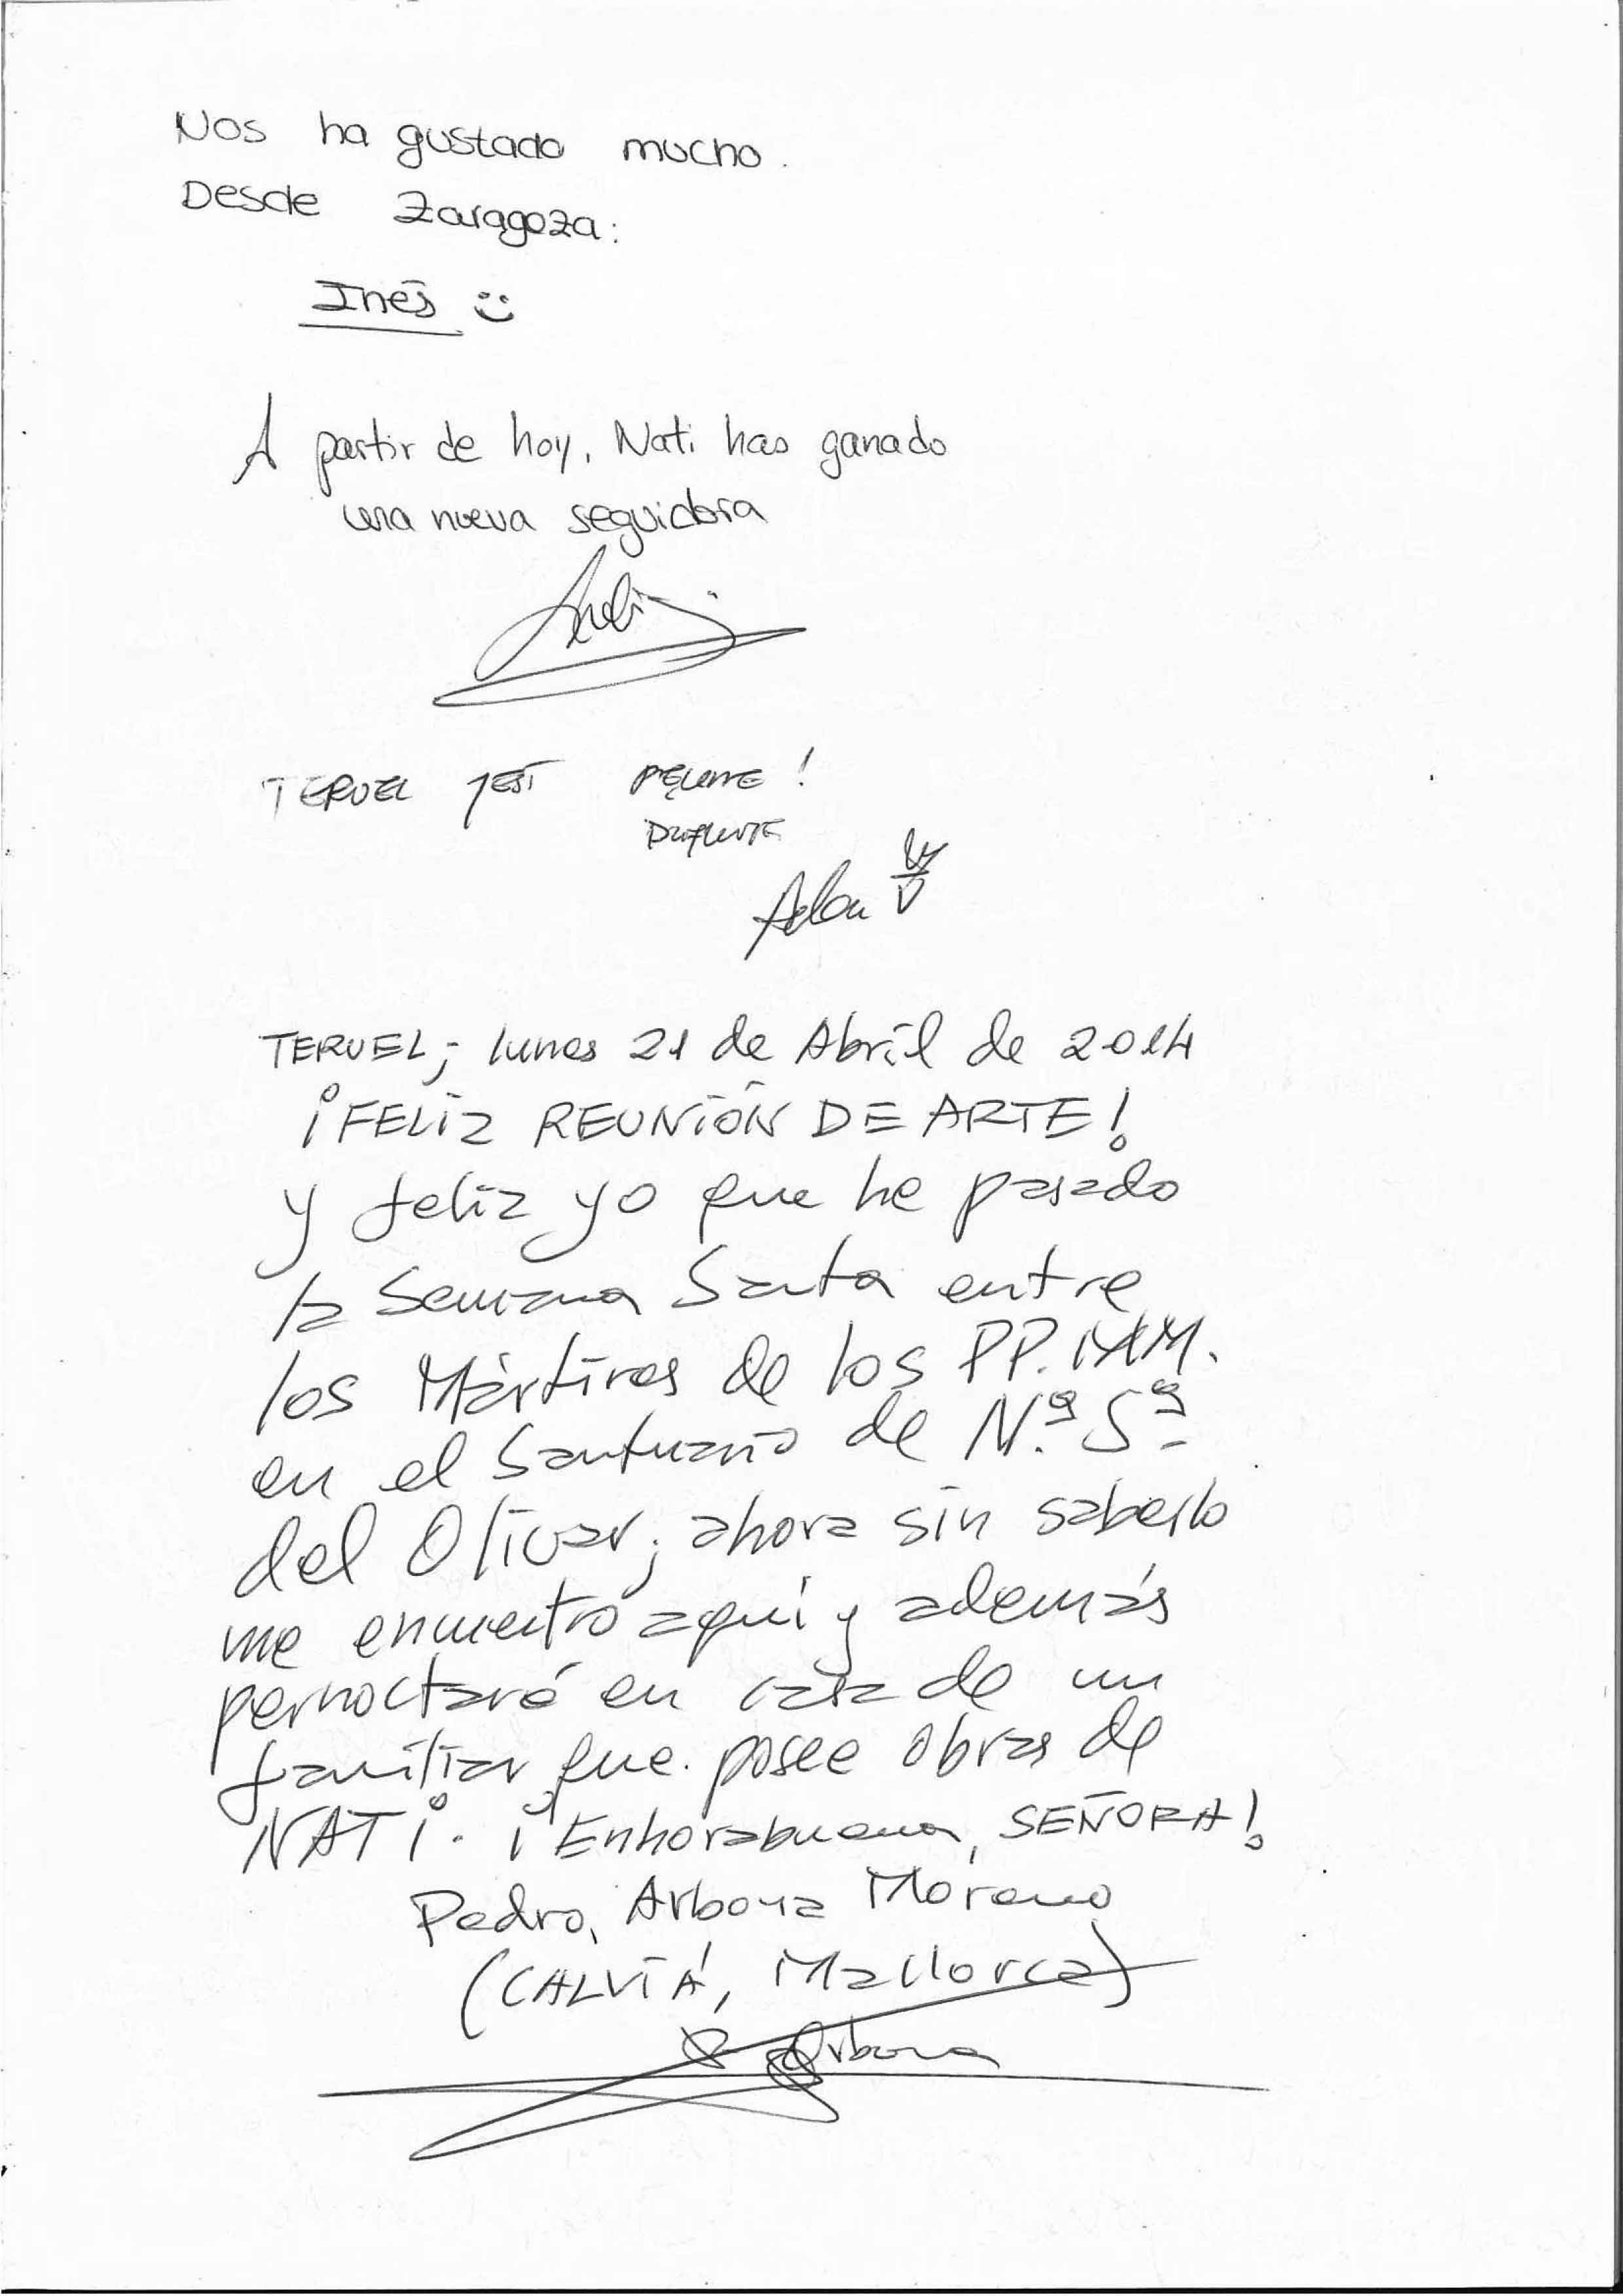 Nos ha gustado mucho.
Desde Zaragoza:
Inés
A partir de hoy, Nati has ganado
una nueva seguidora
TERUEL JEST
TERUEL; lunes 21 de Abril de 2014
¡FELIZ REUNIÓN DE ARTE!
y feliz yo que he pasado
la Semana Santa entre
los Mártires de los PP.
en el Santuario de N.ª Sª
del Olivar; ahora sin saberlo
me encuentro aquí y además
pernoctaré en casa de un
familiar que posee obras de
NATI. ¡Enhorabuena, SEÑORA!
Pedro, Arbona Moreno
(CALVIÁ, Mallorca)
Arbona